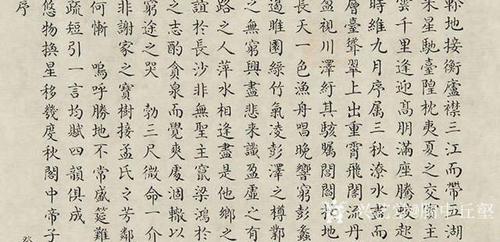 軫地接衡廬襟三江而帶五湖
采星馳臺隍枕夷夏之交主
雲千里逢迎高朋滿座騰起
時維九月序屬三秋潦水盡而
層臺聳翠上出重霄飛閣流丹
盈視川澤紆其駭矚閭閻撲地
長天一色漁舟唱晚響窮彭蠡
過睢園綠竹氣凌彭澤之樽鄴
之無窮興盡悲來識盈虛之有
路之人萍水相逢盡是他鄉之
誼於長沙非無聖主竄梁鴻於
之志酌貪泉而覺爽處涸轍以
窮途之哭 勃三尺微命一介
非謝家之寶樹接孟氏之芳鄰
何慚 嗚呼勝地不常盛筵難
疏短引一言均賦四韻俱成
悠物換星移幾度秋閣中帝子
序
中丘壑